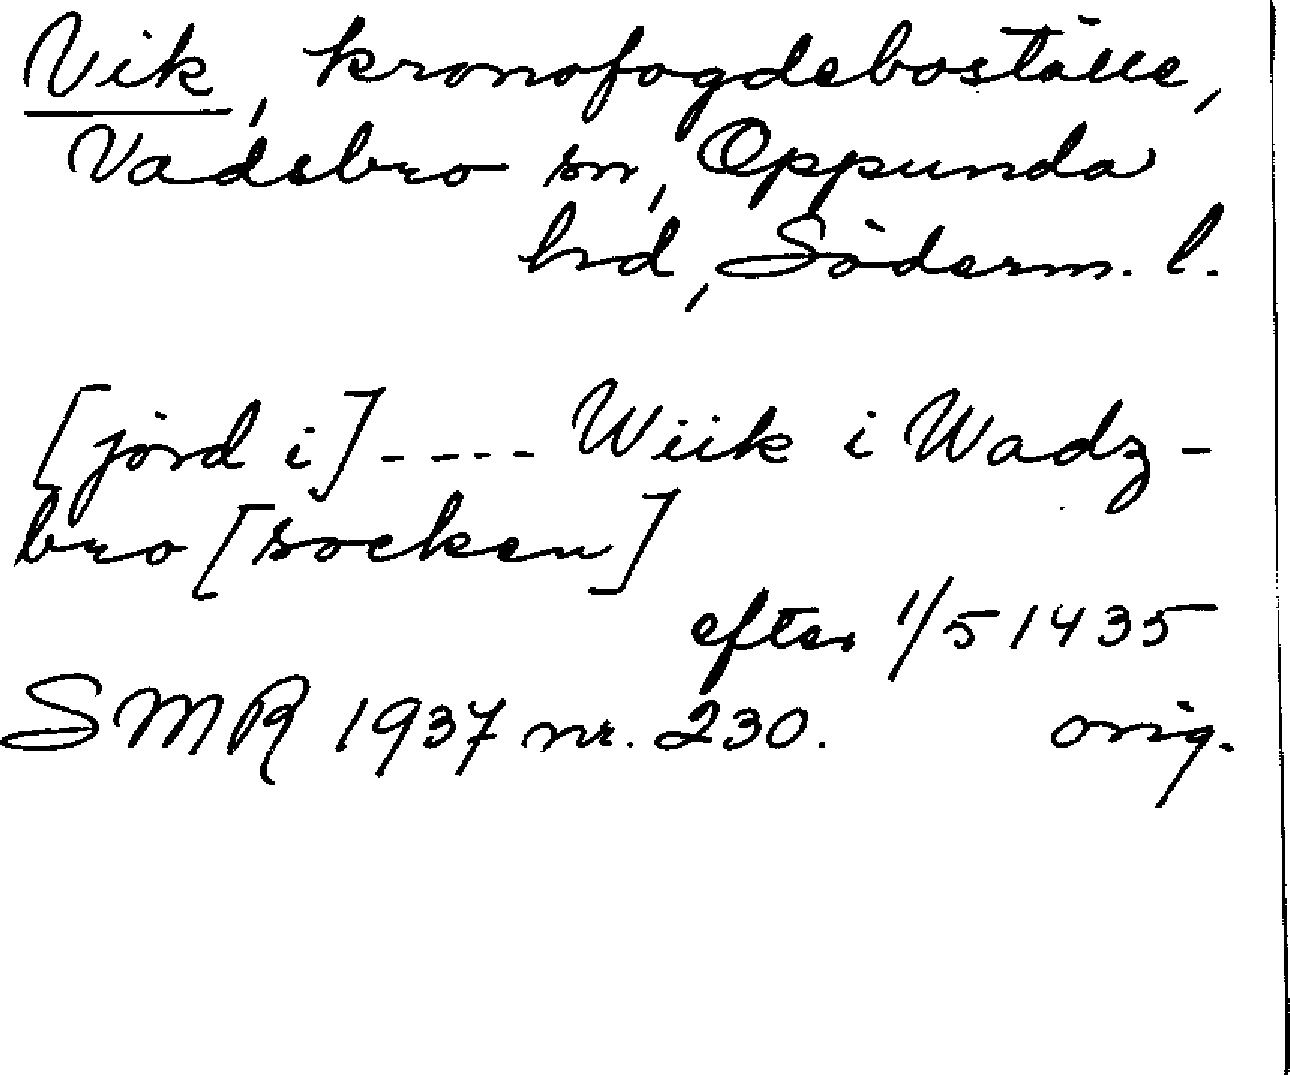 Vik, kronofogdeboställe,
Vadsbro sn, Oppunda
hd, Söderm. l.
[jord i] ---- Wiik i Wadz-
bro [socken]
efter 1/5 1435
SMR 1937 nr. 230. orig.